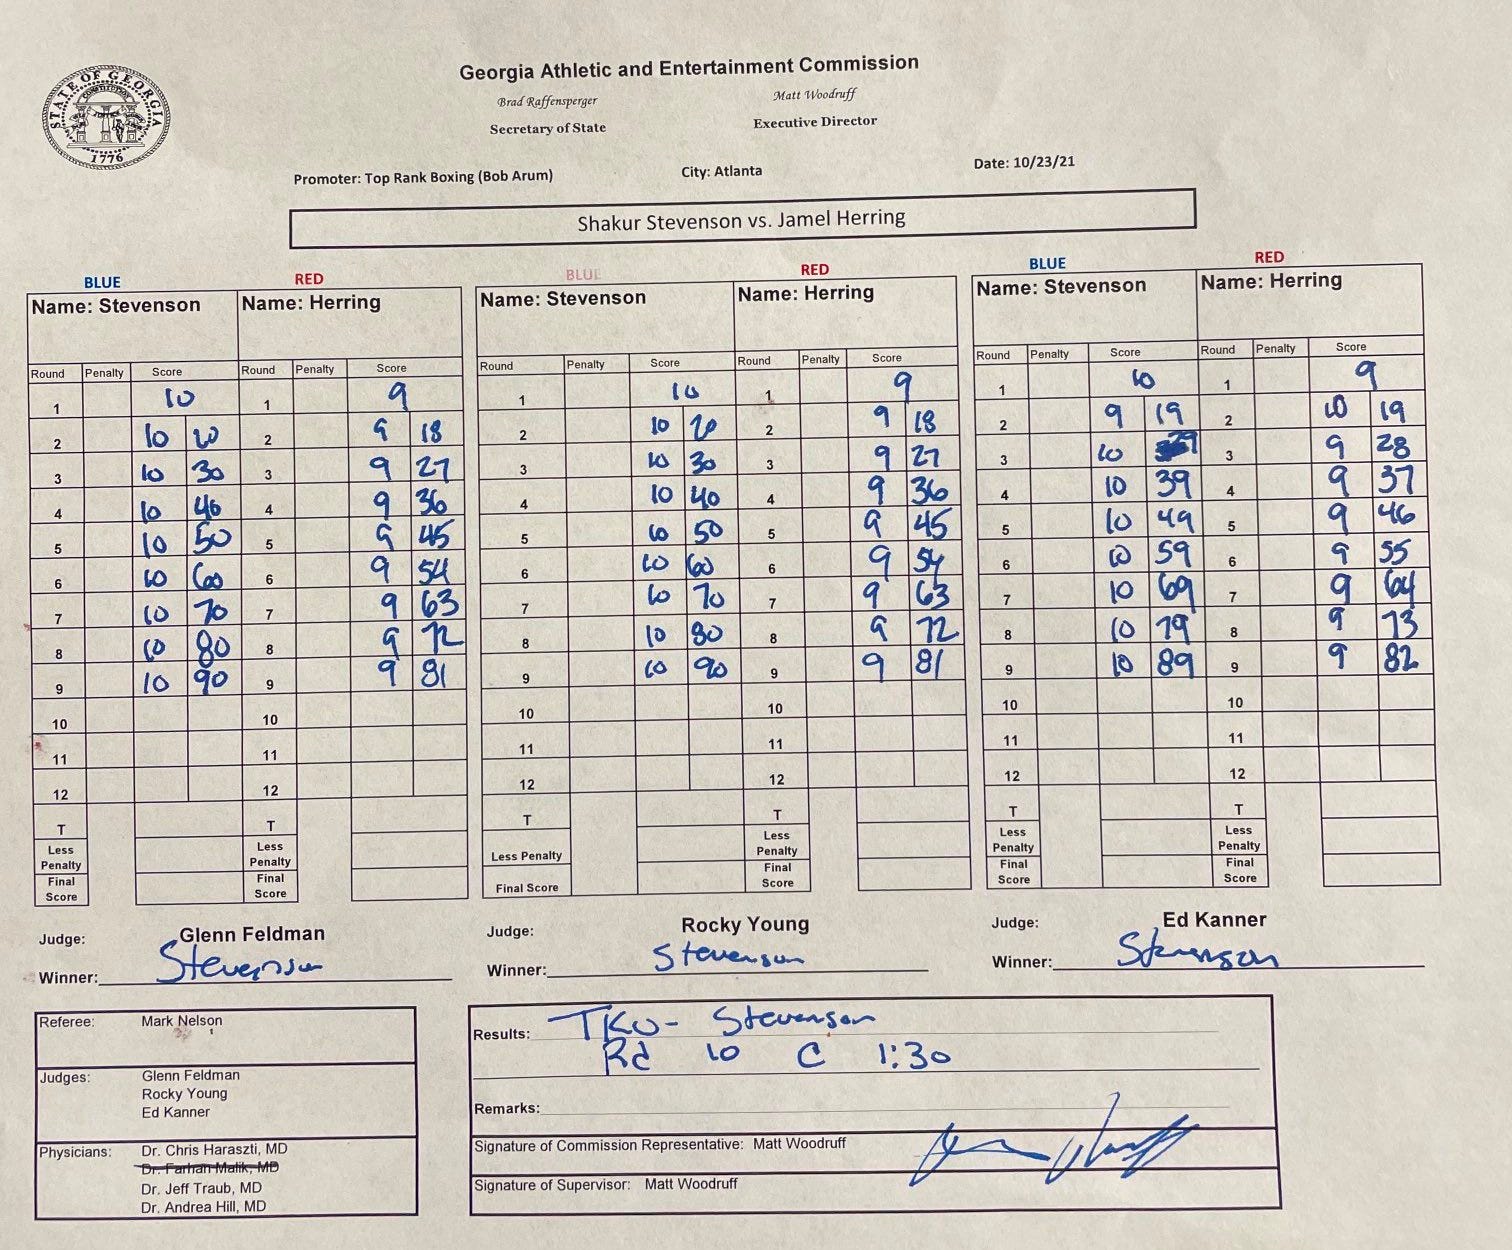 STATE OF GEORGIA
CONSTITUTION
1776
Georgia Athletic and Entertainment Commission
Brad Raffensperger Matt Woodruff
Secretary of State Executive Director
Promoter: Top Rank Boxing (Bob Arum) City: Atlanta Date: 10/23/21
Shakur Stevenson vs. Jamel Herring
BLUE RED BLUE RED BLUE RED
Name: Stevenson Name: Herring Name: Stevenson Name: Herring Name: Stevenson Name: Herring
Round Penalty Score Round Penalty Score Round Penalty Score Round Penalty Score Round Penalty Score Round Penalty Score
1 10 1 9 1 10 1 9 1 10 1 9
2 10 20 2 9 18 2 10 20 2 9 18 2 9 19 2 10 19
3 10 30 3 9 27 3 10 30 3 9 27 3 10 29 3 9 28
4 10 40 4 9 36 4 10 40 4 9 36 4 10 39 4 9 37
5 10 50 5 9 45 5 10 50 5 9 45 5 10 49 5 9 46
6 10 60 6 9 54 6 10 60 6 9 54 6 10 59 6 9 55
7 10 70 7 9 63 7 10 70 7 9 63 7 10 69 7 9 64
8 10 80 8 9 72 8 10 80 8 9 72 8 10 79 8 9 73
9 10 90 9 9 81 9 10 90 9 9 81 9 10 89 9 9 82
10 10 10 10 10 10
11 11 11 11 11 11
12 12 12 12 12 12
T T T T T T
Less Penalty Less Penalty Less Penalty Less Penalty Less Penalty Less Penalty
Final Score Final Score Final Score Final Score Final Score Final Score
Judge: Glenn Feldman Judge: Rocky Young Judge: Ed Kanner
Winner: Stevenson Winner: Stevenson Winner: Stevenson
Referee: Mark Nelson
Judges: Glenn Feldman
Rocky Young
Ed Kanner
Physicians: Dr. Chris Haraszti, MD
Dr. Farhan Malik, MD
Dr. Jeff Traub, MD
Dr. Andrea Hill, MD
Results: TKO - Stevenson
Rd 10 C 1:30
Remarks:
Signature of Commission Representative: Matt Woodruff
Signature of Supervisor: Matt Woodruff